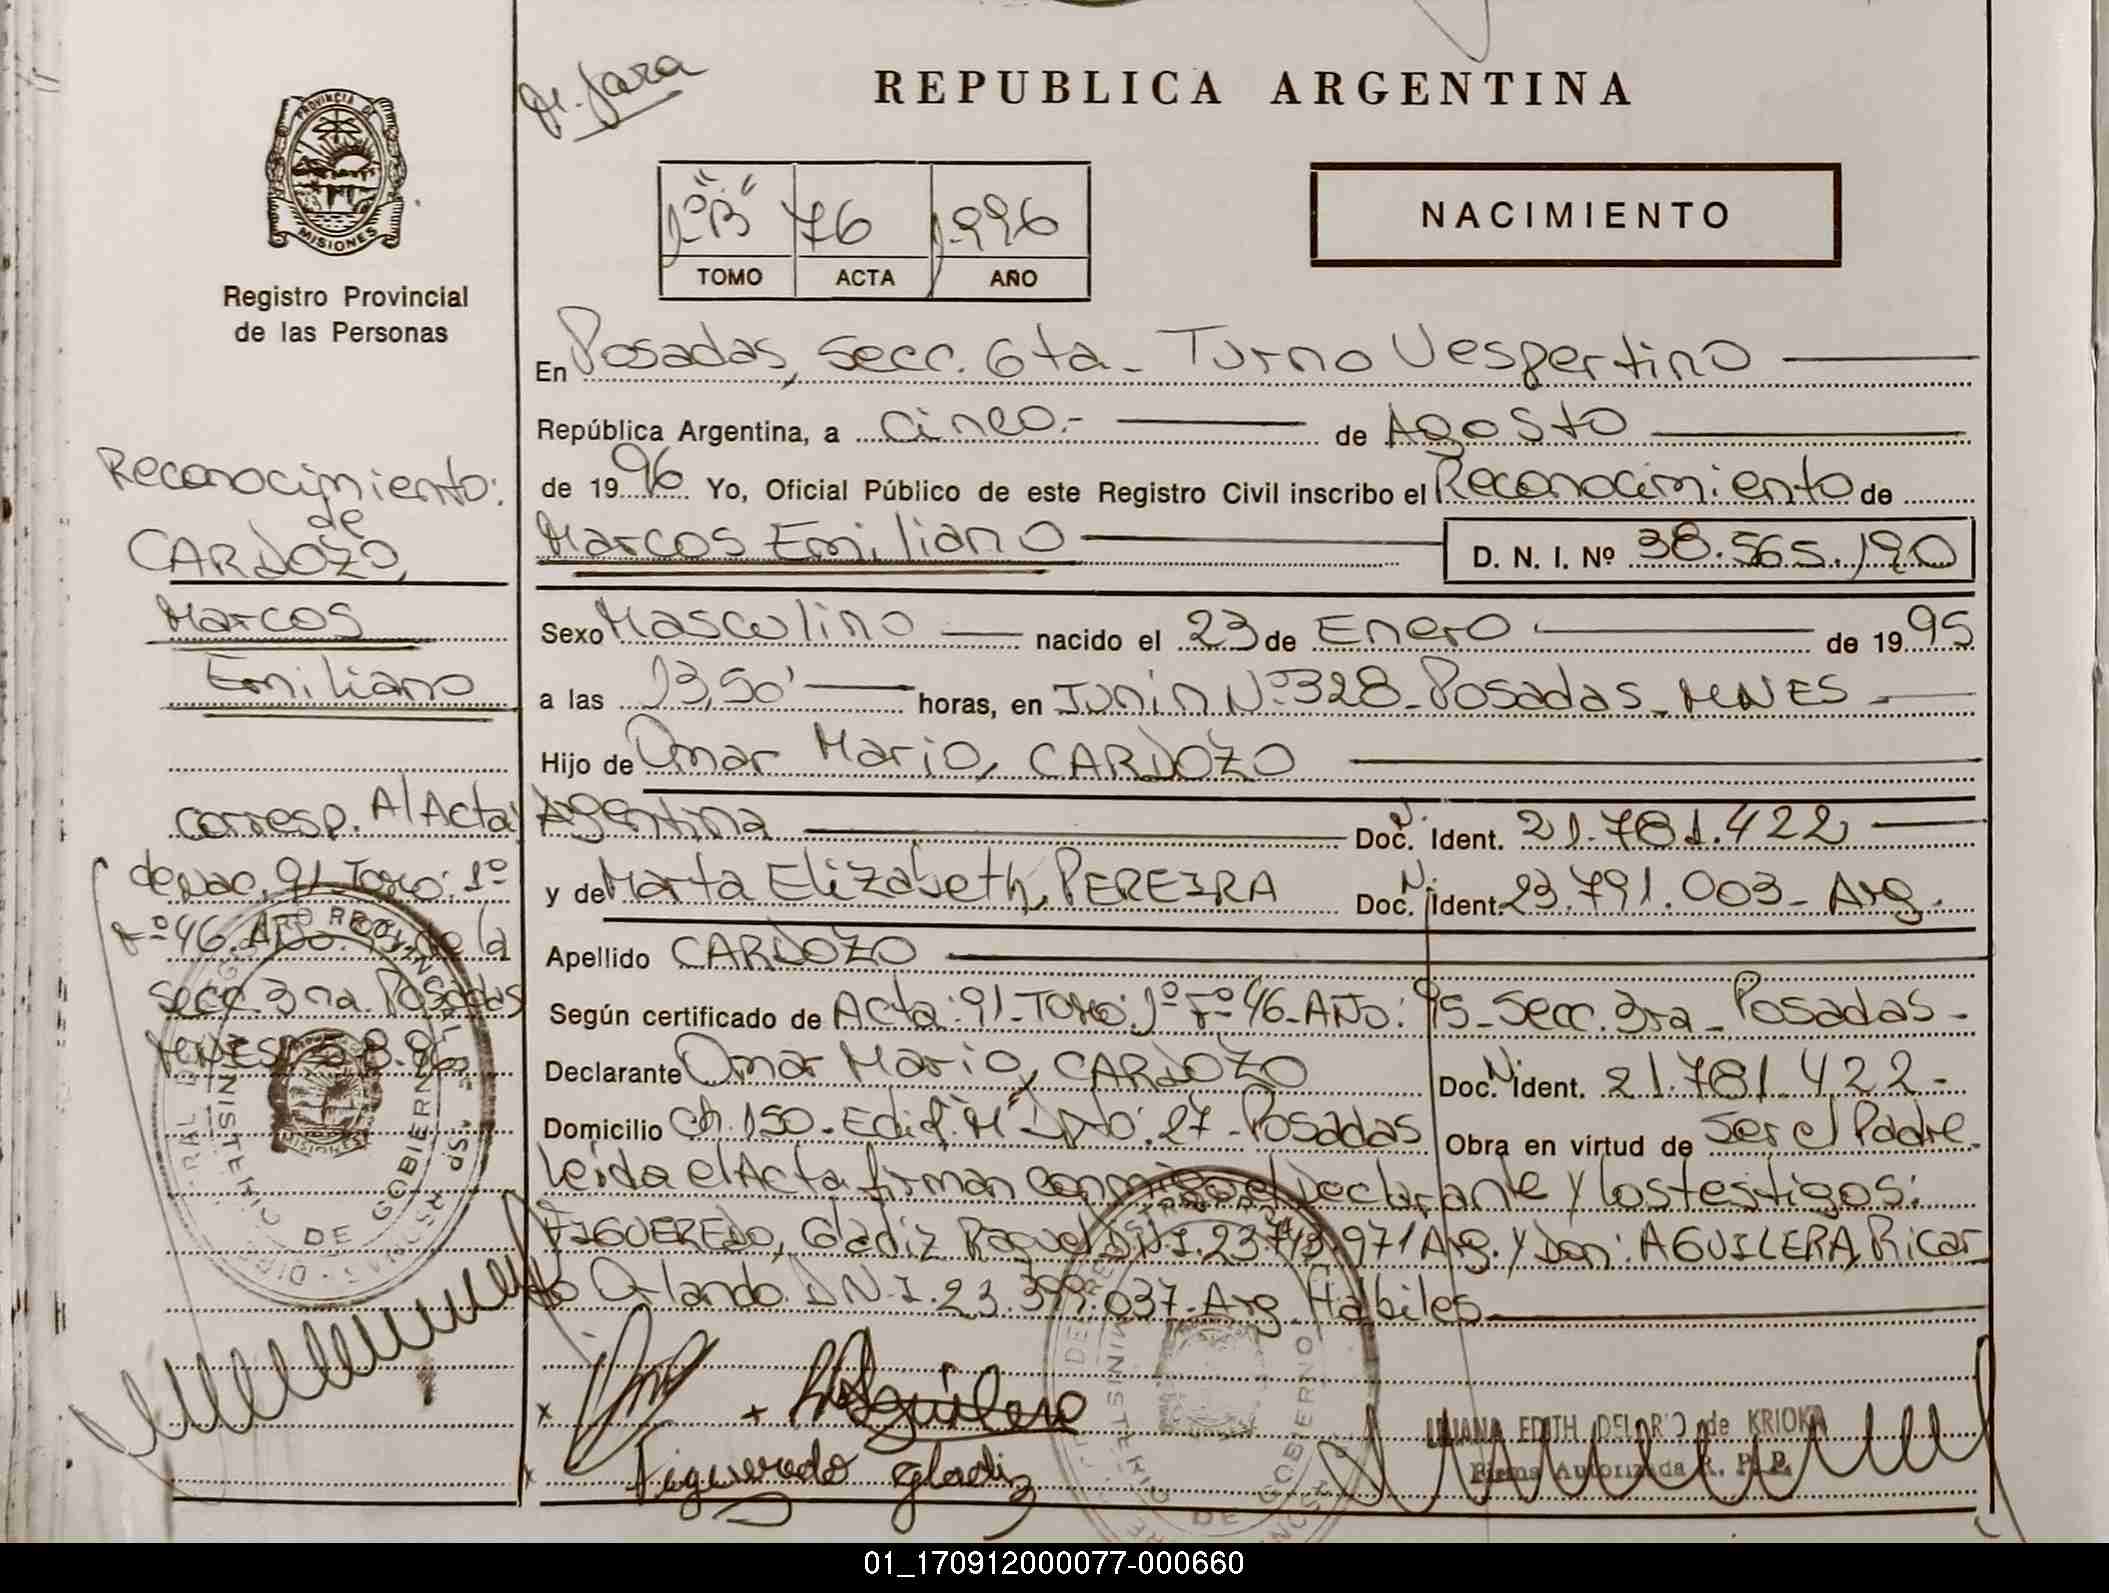 PROVINCIA DE
MISIONES
Registro Provincial
de las Personas
Reconocimiento:
de
CARDOZO,
Marcos
Emiliano
corresp. Al Acta:
de Nac. 91. Tomo: 1º
Fº 46. Año. 95 de la
Secc. 3ra. Posadas
MNES. 5.8.96
REPUBLICA ARGENTINA
1º "B" 76 1.996
TOMO ACTA AÑO
NACIMIENTO
En Posadas, Secc. 6ta - Turno Vespertino
República Argentina, a Cinco.- de Agosto
de 1996 Yo, Oficial Público de este Registro Civil inscribo el Reconocimiento de
Marcos Emiliano D. N. I. Nº 38.565.190
Sexo Masculino nacido el 23 de Enero de 1995
a las 13,50' horas, en Junin Nº 328 - Posadas - MNES
Hijo de Omar Mario, CARDOZO
Argentina Doc. N. Ident. 21.781.422
y de Marta Elizabeth, PEREIRA Doc. N. Ident. 23.791.003 - Arg.
Apellido CARDOZO
Según certificado de Acta: 91 - Tomo: 1º Fº 46 - Año: 95 - Secc. 3ra - Posadas -
Declarante Omar Mario, CARDOZO Doc. N. Ident. 21.781.422 -
Domicilio Ch. 150 - Edif. "M" Dto: 27 - Posadas Obra en virtud de Ser el Padre.
Leída el Acta firman conmigo el Declarante y los testigos:
FIGUEREDO, Gladiz Raquel DNI. 23.743.971 Arg. y Don: AGUILERA, Ricar
do Orlando. D.N.I. 23.399.037 - Arg. Hábiles
Aguilera
Figueredo Gladiz
LILIANA EDITH DEL RIO de KRIOKA
Firma Autorizada R. P. P.
01_170912000077-000660